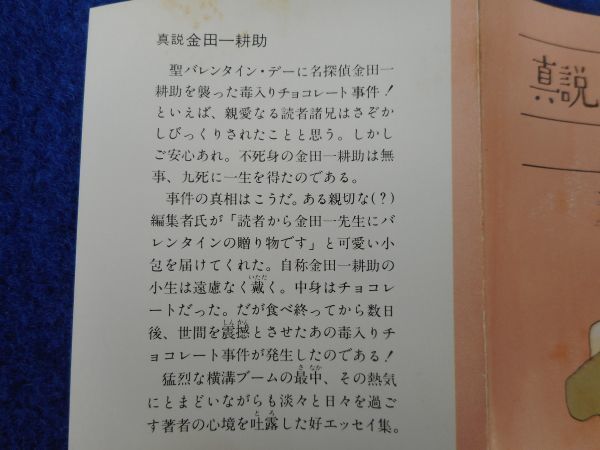 真説 金田一耕助
聖バレンタイン・デーに名探偵金田一
耕助を襲った毒入りチョコレート事件！
といえば、親愛なる読者諸兄はさぞか
しびっくりされたことと思う。しかし
ご安心あれ。不死身の金田一耕助は無
事、九死に一生を得たのである。
事件の真相はこうだ。ある親切な(？)
編集者氏が「読者から金田一先生にバ
レンタインの贈り物です」と可愛い小
包を届けてくれた。自称金田一耕助の
小生は遠慮なく戴く。中身はチョコレ
ートだった。だが食べ終ってから数日
後、世間を震撼とさせたあの毒入りチ
ョコレート事件が発生したのである！
猛烈な横溝ブームの最中、その熱気
にとまどいながらも淡々と日々を過ご
す著者の心境を吐露した好エッセイ集。
真説